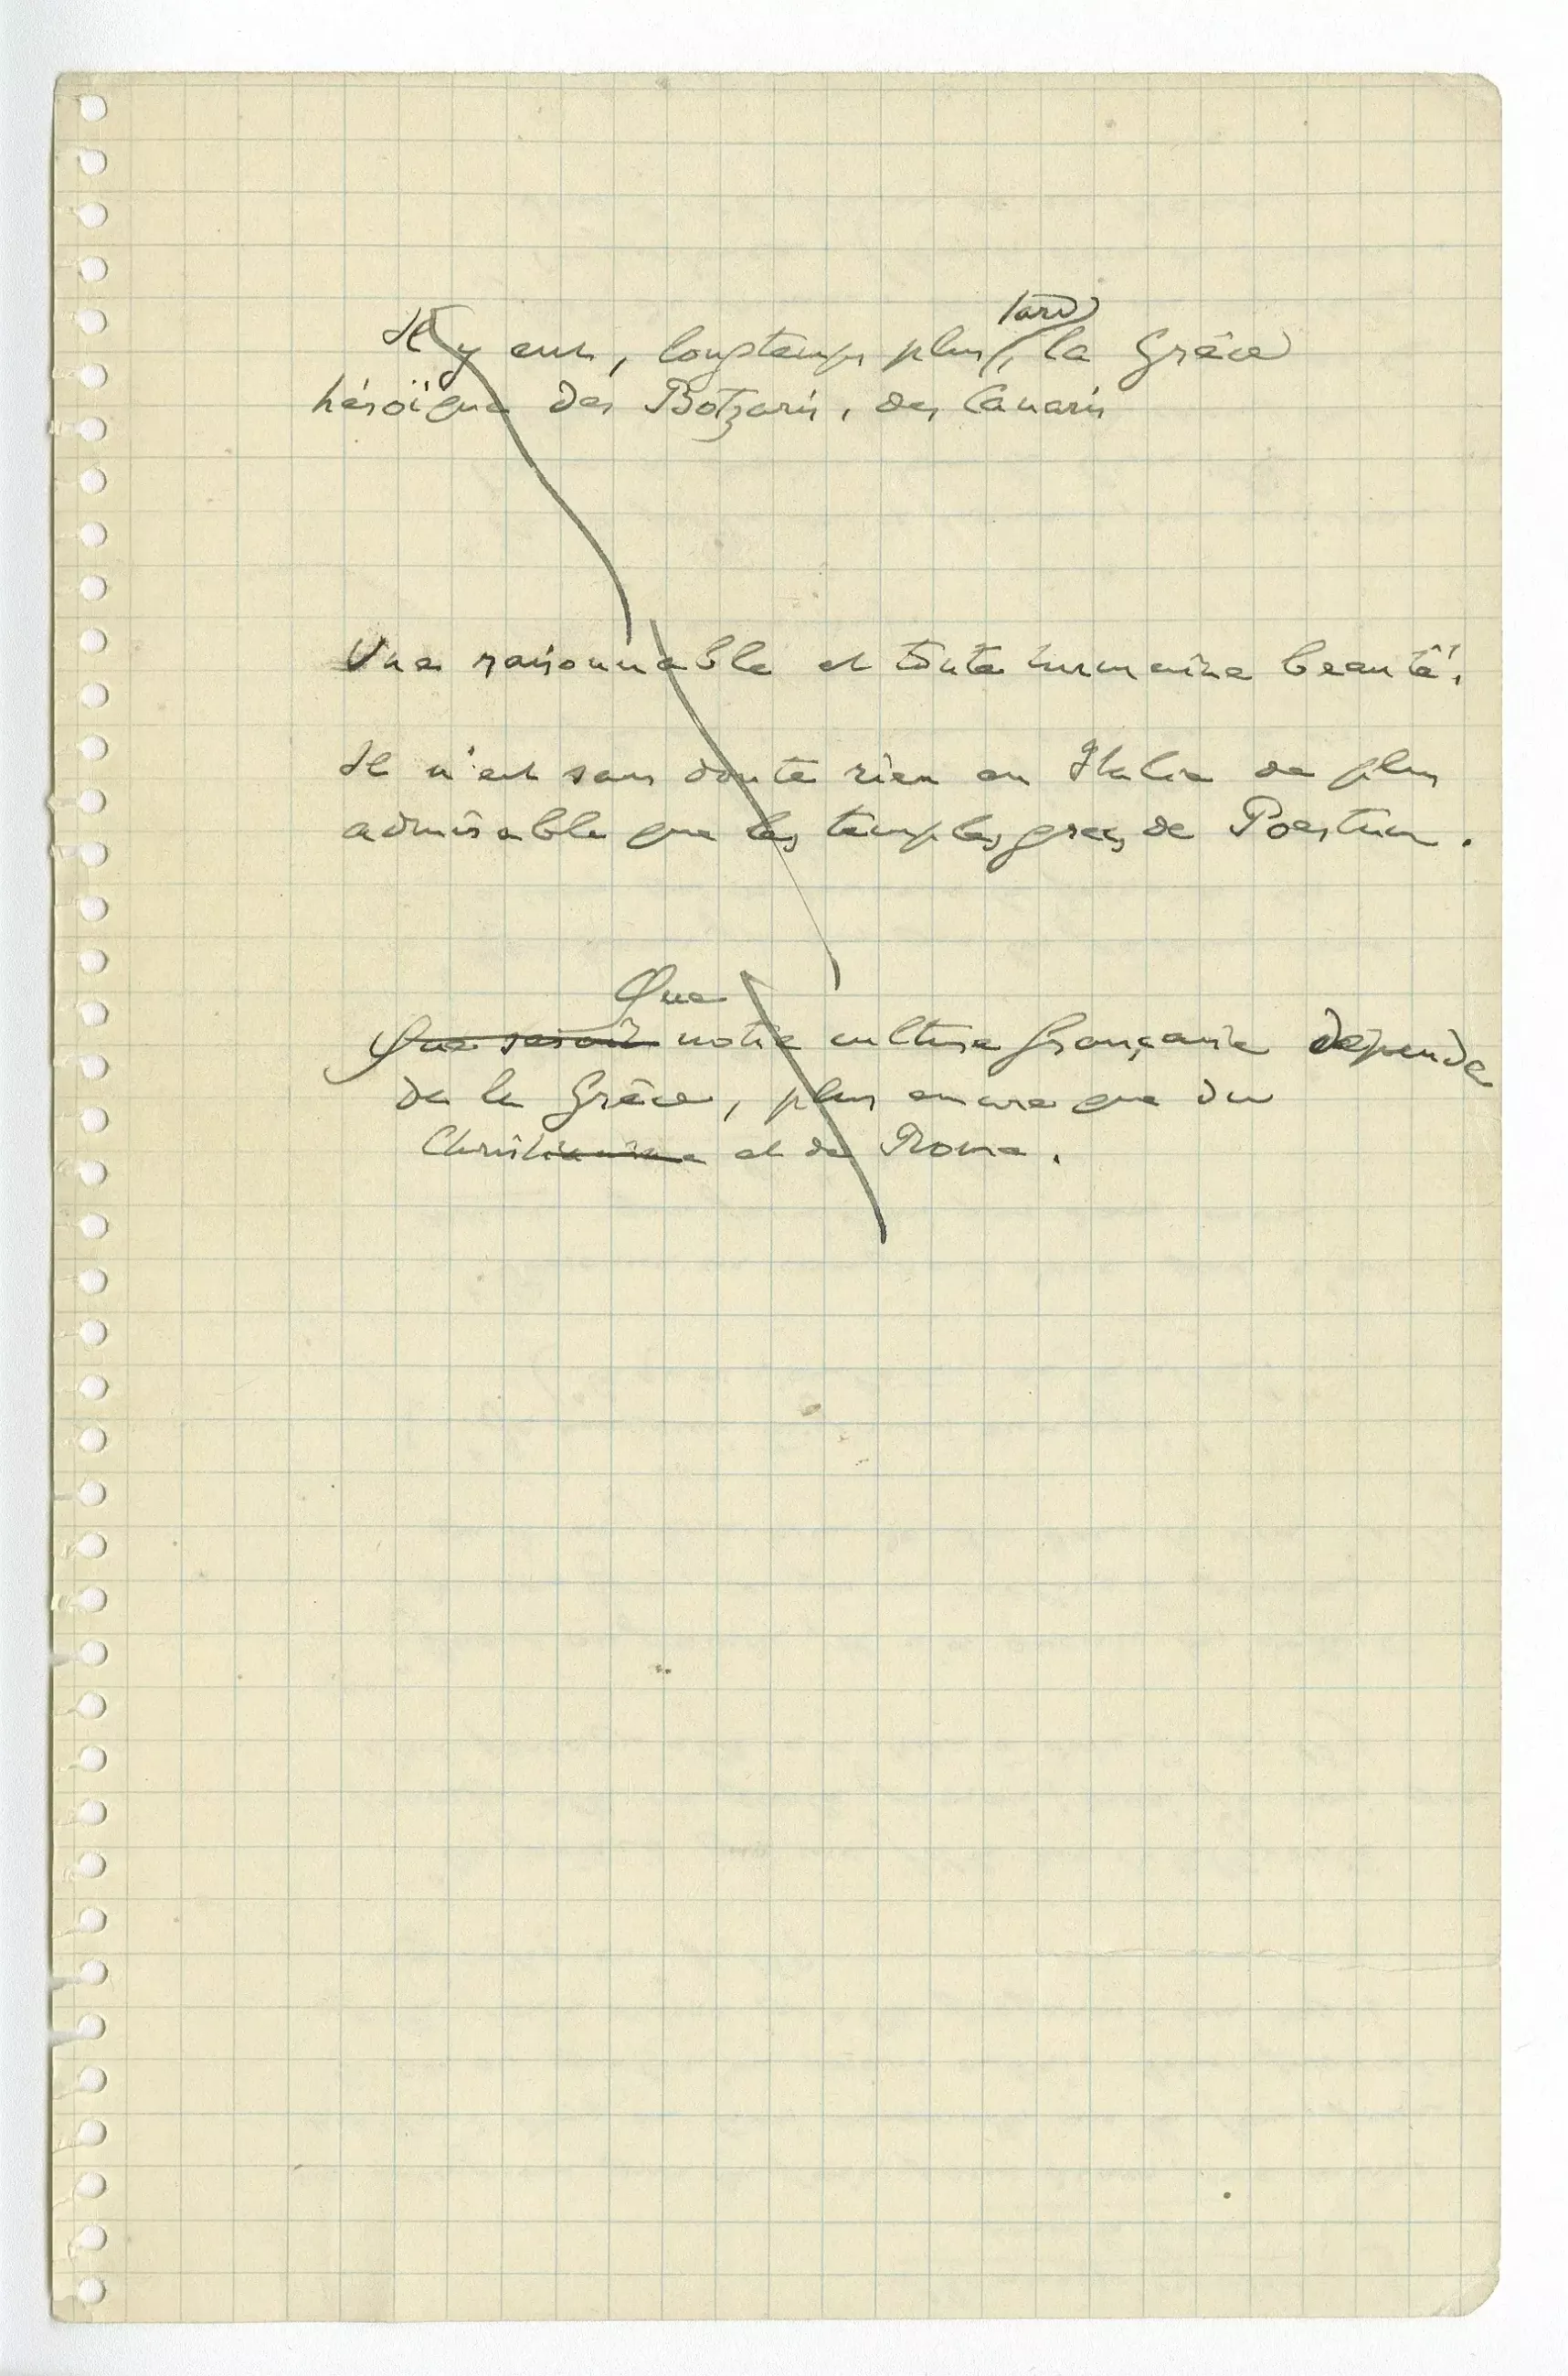 Il y eut, longtemps plus tard, la Grèce
héroïque des Botzaris, des Canaris
Une raisonnable et toute humaine beauté.
Il n'est sans doute rien en Italie de plus
admirable que les temples grecs de Poestum.
Que
Que serait notre culture française dépende
de la Grèce, plus encore que du
Christianisme et de Rome.